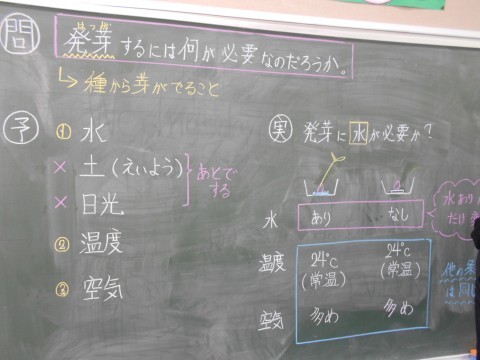 問
はつが
発芽するには何が必要なのだろうか。
↳種から芽がでること
予
① 水
× 土(えいよう)
× 日光
あとでする
② 温度
③ 空気
実 発芽に水が必要か?
水 あり なし
温度 24℃(常温) 24℃(常温)
空気 多め 多め
水あり
だけ
他の
は同じ